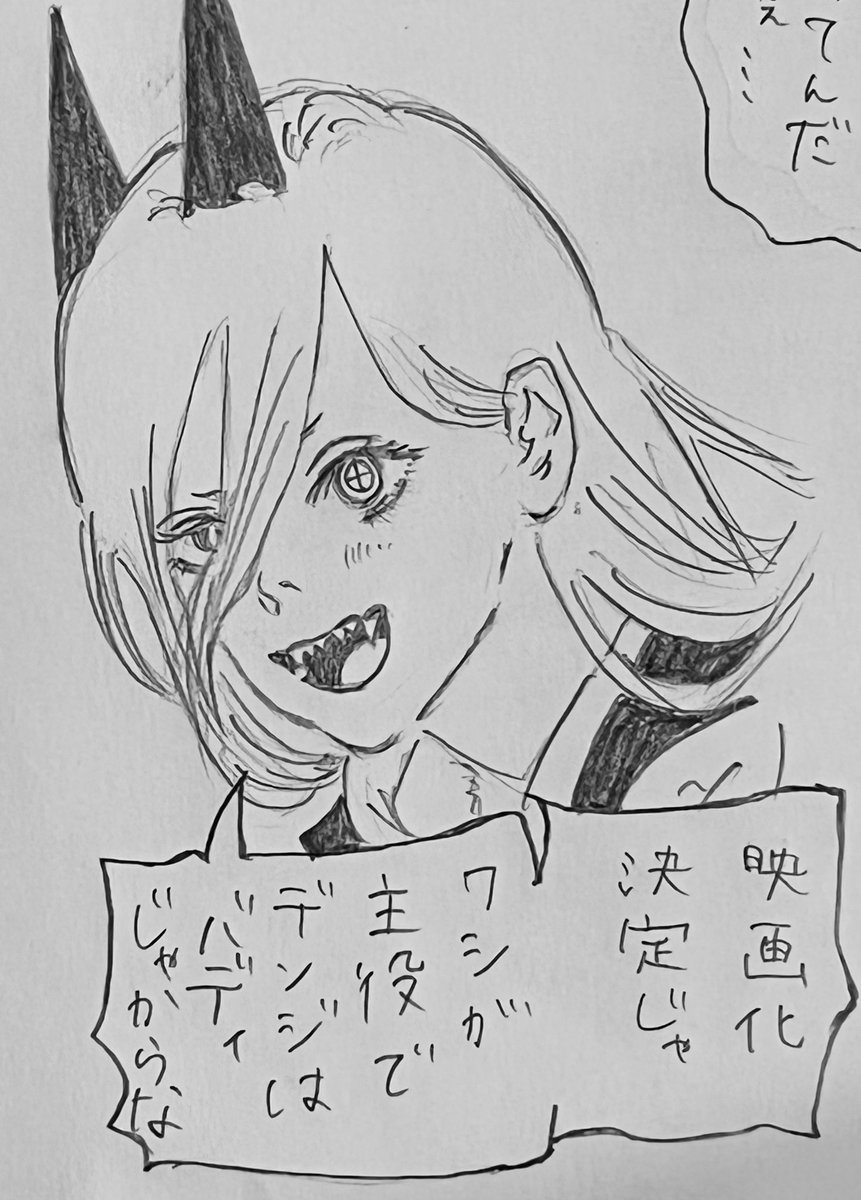 てんだ
ぇ…
映画化
決定じゃ
ワシが
主役で
デンジは
バディ
じゃからな